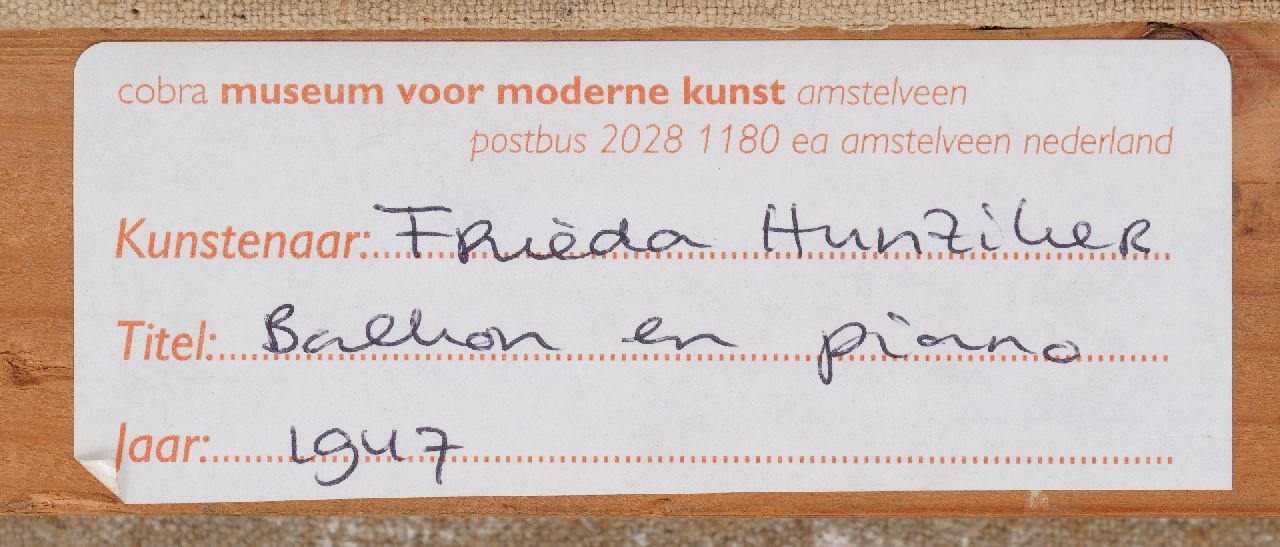 cobra museum voor moderne kunst amstelveen
postbus 2028 1180 ea amstelveen nederland
Kunstenaar: Frieda Hunziker
Titel: Balkon en piano
Jaar: 1947